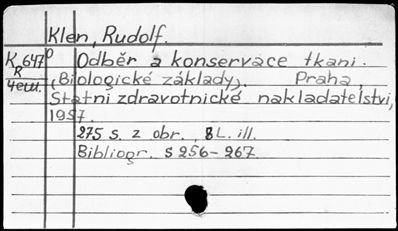 Klen, Rudolf.
K 647⁰ Odběr a konservace tkani.
R (Biologické základy). Praha,
Statni zdravotnické nakladatelstvi,
1957.
275 s. z obr., 8 L. ill.
Bibliogr. s 256-267.